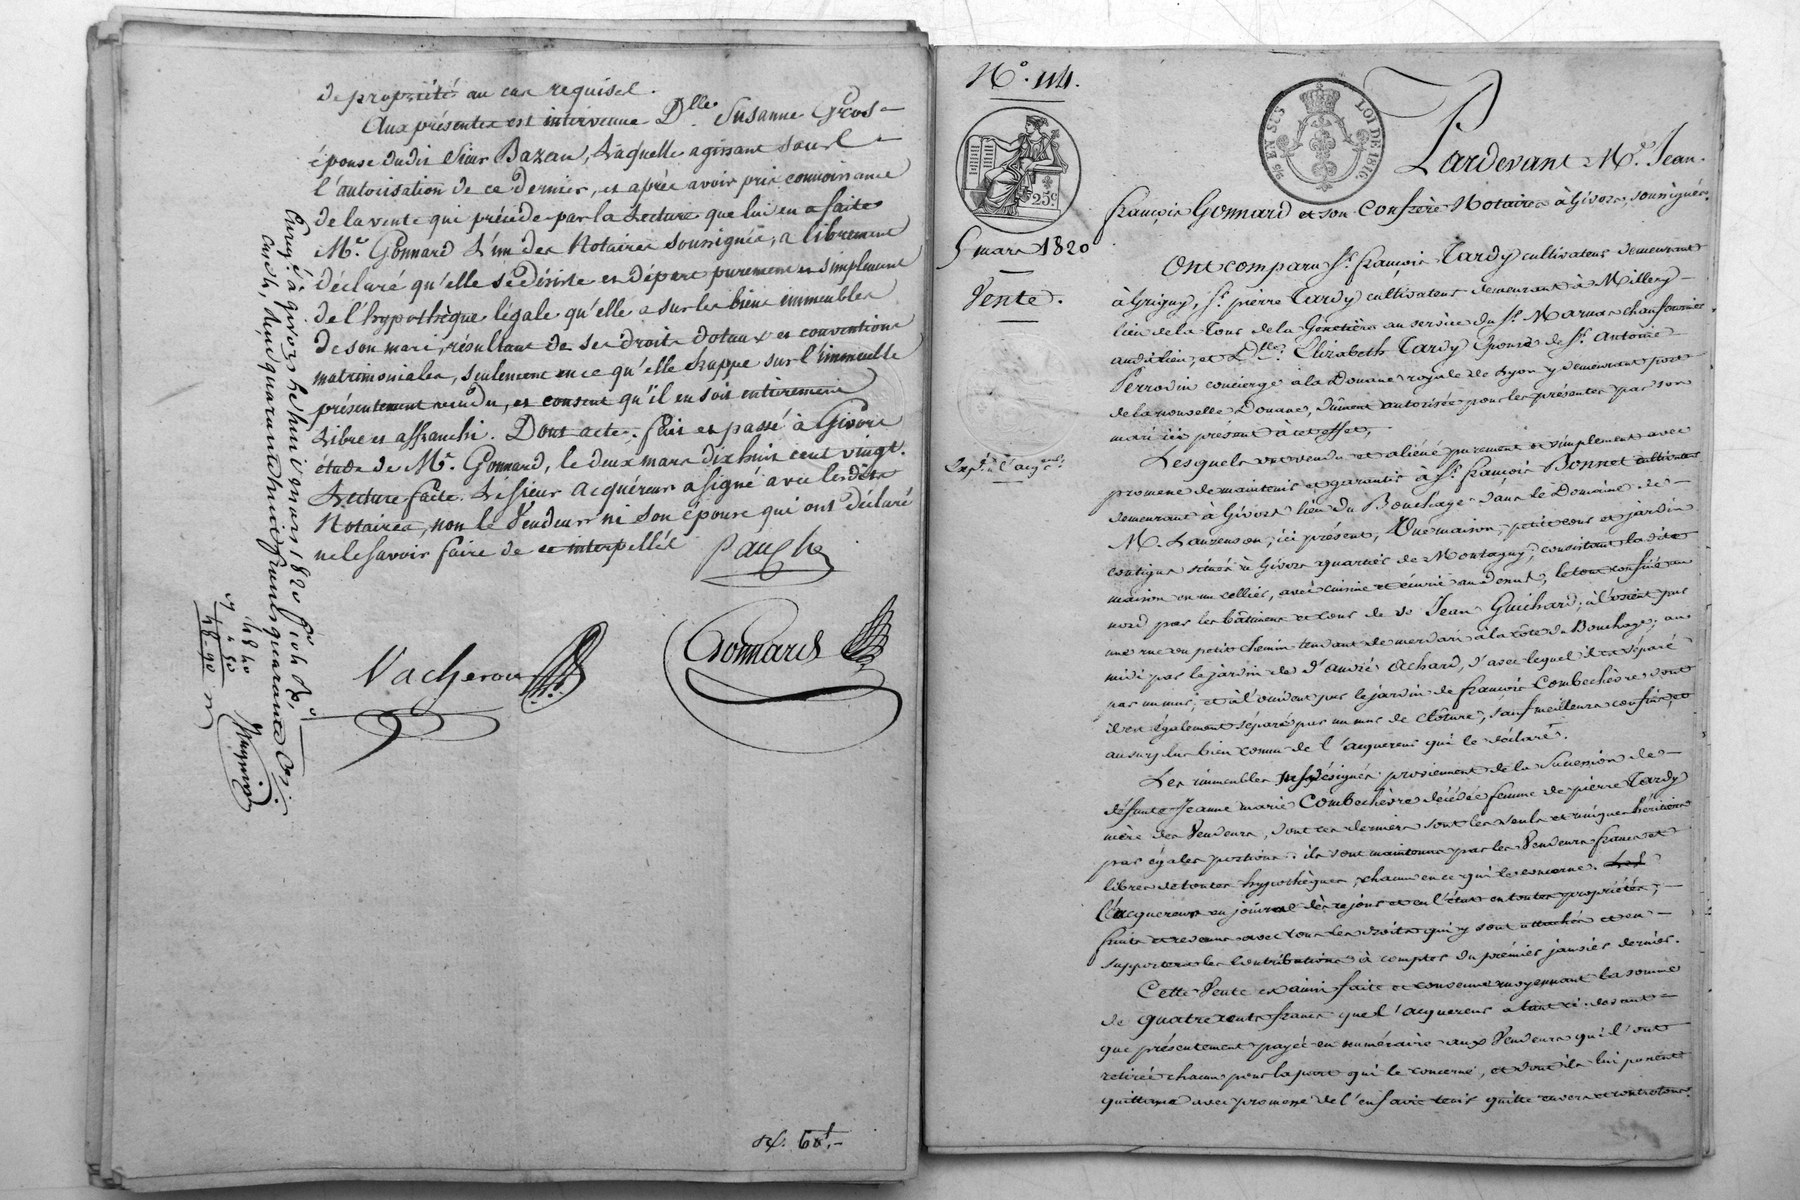 de propriété au cas requisel.
Aux présentes est intervenue D.lle Susanne Gros
épouse dudit Sieur Bazan, Laquelle agissant sous
l'autorisation de ce dernier, et après avoir pris connoissance
de la vente qui précède par la Lecture que lui en a faite
M.e Gonnard L'un des Notaires soussignés, a librement
déclaré qu'elle se désiste et départ purement et simplement
de l'hypothèque légale qu'elle a sur les biens immeubles
de son mari, résultant de ses droits dotaux et conventions
matrimoniales, seulement en ce qu'elle frappe sur l'immeuble
présentement vendu, et consent qu'il en soit entièrement
Libre et affranchi. Dont acte, fait et passé à Givors
étude de M.e Gonnard, le deux mars dix huit cent vingt.
Lecture faite. Le Sieur acquéreur a signé avec lesdits
Notaires, non le Vendeur ni son épouse qui ont déclaré
ne le savoir faire de ce interpellés
Vacheron
Gonnard
Enreg. à Givors le huit mars 1820
quarante huit francs quarante C.es
44 40
4 40
48 . 40
N.o 114.
25c
EN SUS
LOI DE 1816.
5 mars 1820
Vente.
Pardevant M.e Jean
françois Gonnard et son Confrère Notaires à Givors, soussignés
Ont comparu S.r françois Tardy cultivateur demeurant
à Grigny, S.r pierre Tardy cultivateur demeurant à Millery
lieu de la Tour de la au service du S.r Marnas chaufournier
audit lieu, et D.lle Elizabeth Tardy épouse de S.r Antoine
Perrodin concierge à la Douane royale de Lyon y demeurant port
de la nouvelle Douane, dûment autorisée pour les présentes par son
mari ici présent à cet effet,
Lesquels ont vendu et aliéné purement et simplement avec
promesse de maintenir et garantir à S.r françois Bonnet cultivateur
demeurant à Givors lieu du Bouchage dans le Domaine de
M. Lauzenson, ici présent, Une maison, petite cour et jardin
contigus situés à Givors quartier de Montagny, consistant la dite
maison en un cellier, avec cuisine et écurie au devant, le tout confiné au
nord par les bâtimens et cour de S.r Jean Guichard; à l'orient par
une rue ou petit chemin tendant de à la côte du Bouchage; au
midi par le jardin de d'andré Achard, d'avec lequel il est séparé
par un mur; et à l'occident par le jardin de françois Combechèvre dont
il est également séparé par un mur de clôture, sauf meilleurs confins, et
au surplus bien connu de l'acquereur qui le déclare.
Les immeubles désignés proviennent de la Succession de
défunte Jeanne marie Combechèvre décédée femme de pierre Tardy
mère des Vendeurs, dont ces derniers sont les seuls et uniques héritiers
par égales portions. ils sont maintenus par les Vendeurs francs et
libres de toutes hypothèques, chacun en ce qui le concerne.
L'acquereur en jouira dès ce jour et en l'état en toutes propriétés,
fruits et revenus avec tous les droits qui y sont attachés et en
supportera les Contributions à compter du premier janvier dernier.
Cette Vente est ainsi faite et convenue moyennant la somme
de quatre cents francs que l'acquereur a tant ci-devant
que présentement payée en numéraire aux Vendeurs qui l'ont
retirée chacun pour la part qui le concerne, et dont ils lui passent
quittance avec promesse de l'en faire tenir quitte envers et contre tous.